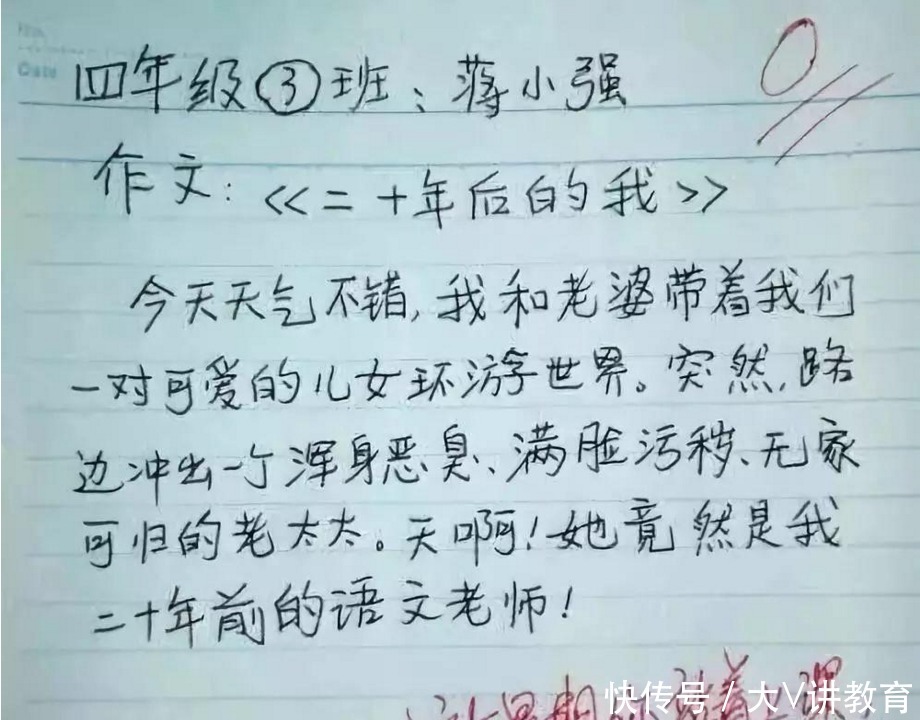 Date
0
四年级③班：蒋小强
作文：《二十年后的我》
今天天气不错，我和老婆带着我们
一对可爱的儿女环游世界。突然，路
边冲出一个浑身恶臭、满脸污秽、无家
可归的老太太。天啊！她竟然是我
二十年前的语文老师！
快传号 / 大V讲教育